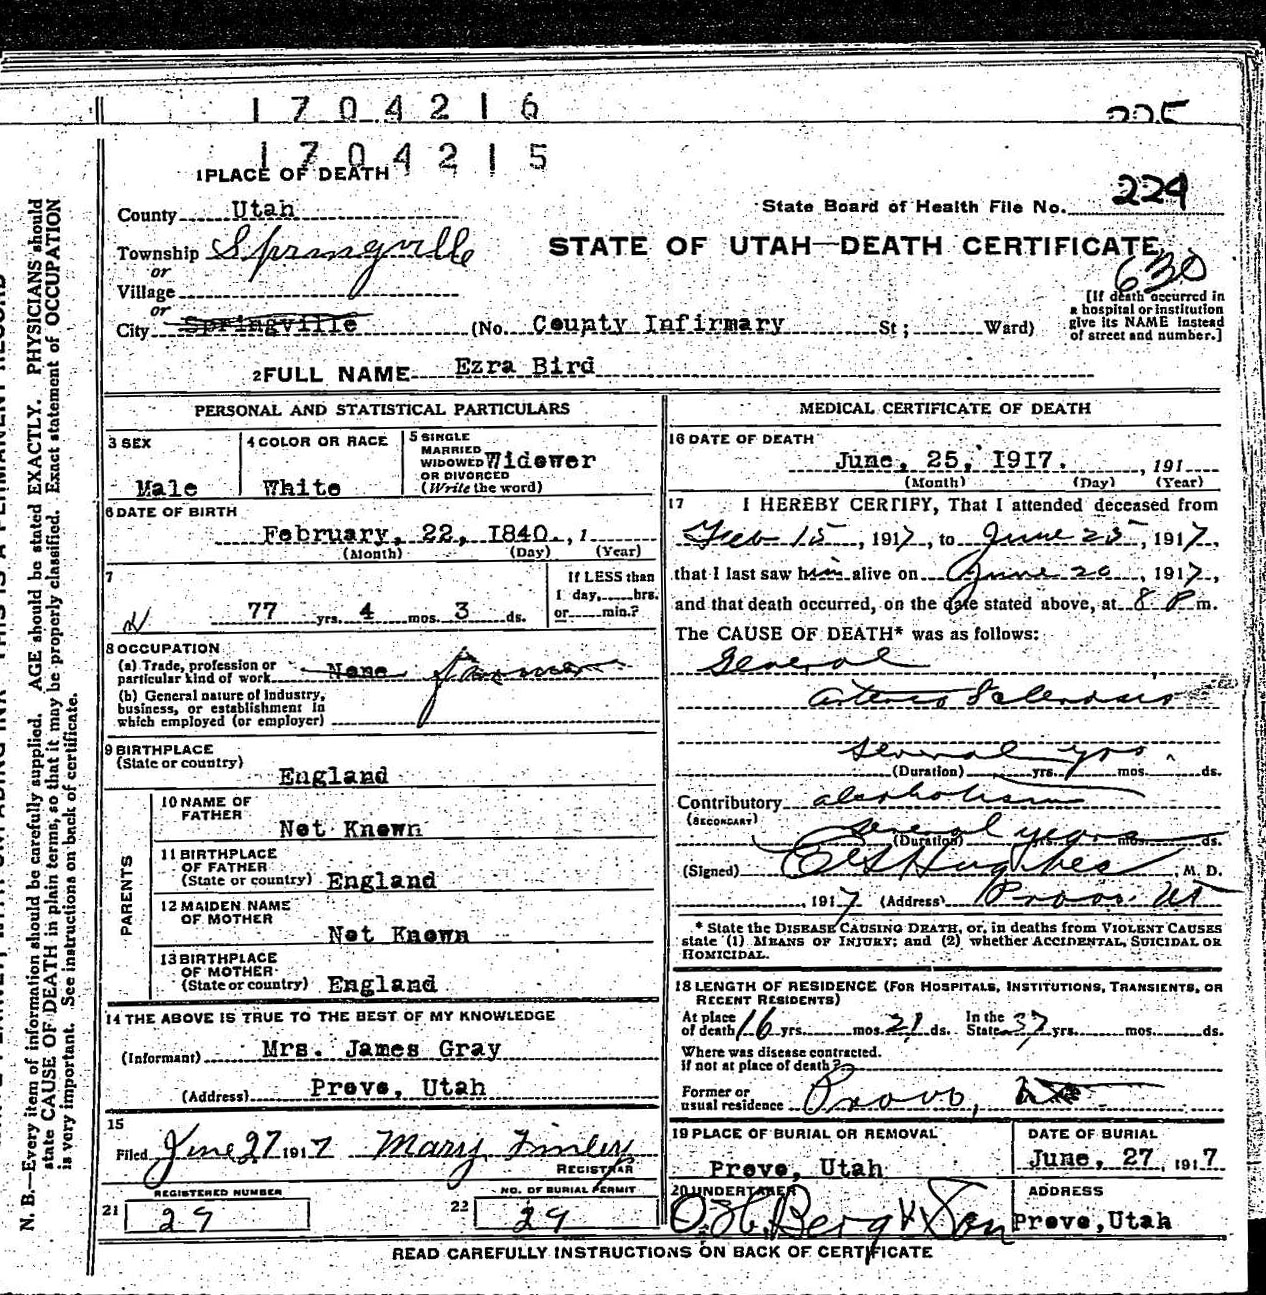 1704216
225
1704215
1 PLACE OF DEATH
224
County Utah
State Board of Health File No.
Township Springville
STATE OF UTAH—DEATH CERTIFICATE
630
or
Village
or
City Springville (No. County Infirmary St; Ward)
[If death occurred in
a hospital or institution
give its NAME instead
of street and number.]
2 FULL NAME Ezra Bird
PERSONAL AND STATISTICAL PARTICULARS
3 SEX
Male
4 COLOR OR RACE
White
5 SINGLE
MARRIED
WIDOWED Widower
OR DIVORCED
(Write the word)
6 DATE OF BIRTH
February, 22, 1840., 1
(Month) (Day) (Year)
7
77 yrs. 4 mos. 3 ds.
If LESS than
1 day, hrs.
or min.?
8 OCCUPATION
(a) Trade, profession or
particular kind of work None farmer
(b) General nature of industry,
business, or establishment in
which employed (or employer)
9 BIRTHPLACE
(State or country)
England
PARENTS
10 NAME OF
FATHER
Not Known
11 BIRTHPLACE
OF FATHER
(State or country) England
12 MAIDEN NAME
OF MOTHER
Not Known
13 BIRTHPLACE
OF MOTHER
(State or country) England
14 THE ABOVE IS TRUE TO THE BEST OF MY KNOWLEDGE
(Informant) Mrs. James Gray
(Address) Provo, Utah
15
Filed June 27 1917 Mary Finley
REGISTRAR
REGISTERED NUMBER
21 29
NO. OF BURIAL PERMIT
22 29
MEDICAL CERTIFICATE OF DEATH
16 DATE OF DEATH
June, 25, 1917. , 191
(Month) (Day) (Year)
17 I HEREBY CERTIFY, That I attended deceased from
Feb 15, 1917, to June 25, 1917,
that I last saw him alive on June 20, 1917,
and that death occurred, on the date stated above, at 8 P m.
The CAUSE OF DEATH* was as follows:
General
arterio Sclerosis
several yrs.
(Duration) yrs. mos. ds.
Contributory alcoholism
(SECONDARY)
several years
(Duration) yrs. mos. ds.
(Signed) Hughes, M. D.
, 1917 (Address) Provo Ut
* State the DISEASE CAUSING DEATH, or, in deaths from VIOLENT CAUSES
state (1) MEANS OF INJURY; and (2) whether ACCIDENTAL, SUICIDAL OR
HOMICIDAL.
18 LENGTH OF RESIDENCE (FOR HOSPITALS, INSTITUTIONS, TRANSIENTS, OR
RECENT RESIDENTS)
At place
of death 16 yrs. mos. 21 ds. In the
State 37 yrs. mos. ds.
Where was disease contracted.
if not at place of death?
Former or
usual residence Provo,
19 PLACE OF BURIAL OR REMOVAL
Provo, Utah
DATE OF BURIAL
June, 27, 1917
20 UNDERTAKER
O. H. Berg & Son
ADDRESS
Provo, Utah
READ CAREFULLY INSTRUCTIONS ON BACK OF CERTIFICATE
N. B.—Every item of information should be carefully supplied. AGE should be stated EXACTLY. PHYSICIANS should
state CAUSE OF DEATH in plain terms, so that it may be properly classified. Exact statement of OCCUPATION
is very important. See instructions on back of certificate.